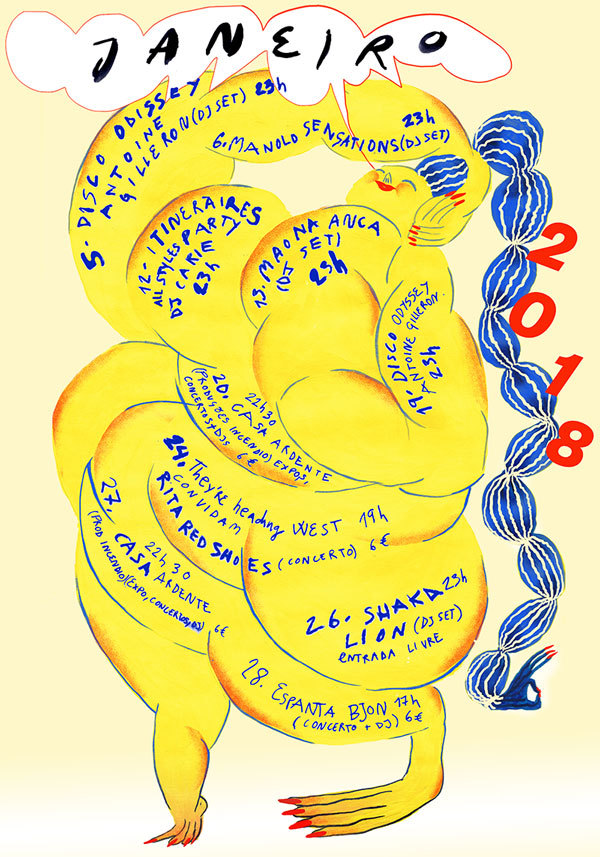 JANEIRO
2018
5. DISCO ODISSEY
ANTOINE
GILLERON (DJ SET) 23h
6. MANOLO SENSATIONS (DJ SET)
23h
12. ITINERAIRES
ALL STYLES PARTY
DJ CARIE
23h
13. MAONA ANCA
(DJ SET)
23h
19. DISCO ODYSSEY
ANTOINE GILLERON.
23h
20. CASA ARDENTE
22h30
(PRODUÇÕES INCENDIO) EXPOS,
CONCERTOS+DJS 6€
24. They're heading WEST 19h
CONVIDAM
RITA RED SHOES (CONCERTO) 6€
26. SHAKA 23h
LION (DJ SET)
ENTRADA LIVRE
27. CASA ARDENTE
22h30
(PROD INCENDIO) (EXPO, CONCERTOS, DJ) 6€
28. ESPANTA BJON 17h
(CONCERTO + DJ) 6€